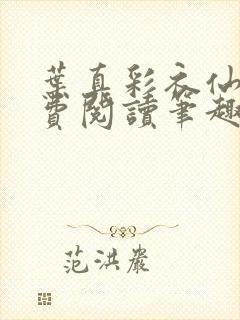 葉真彩衣仙
費閱讀筆趣
范洪巖